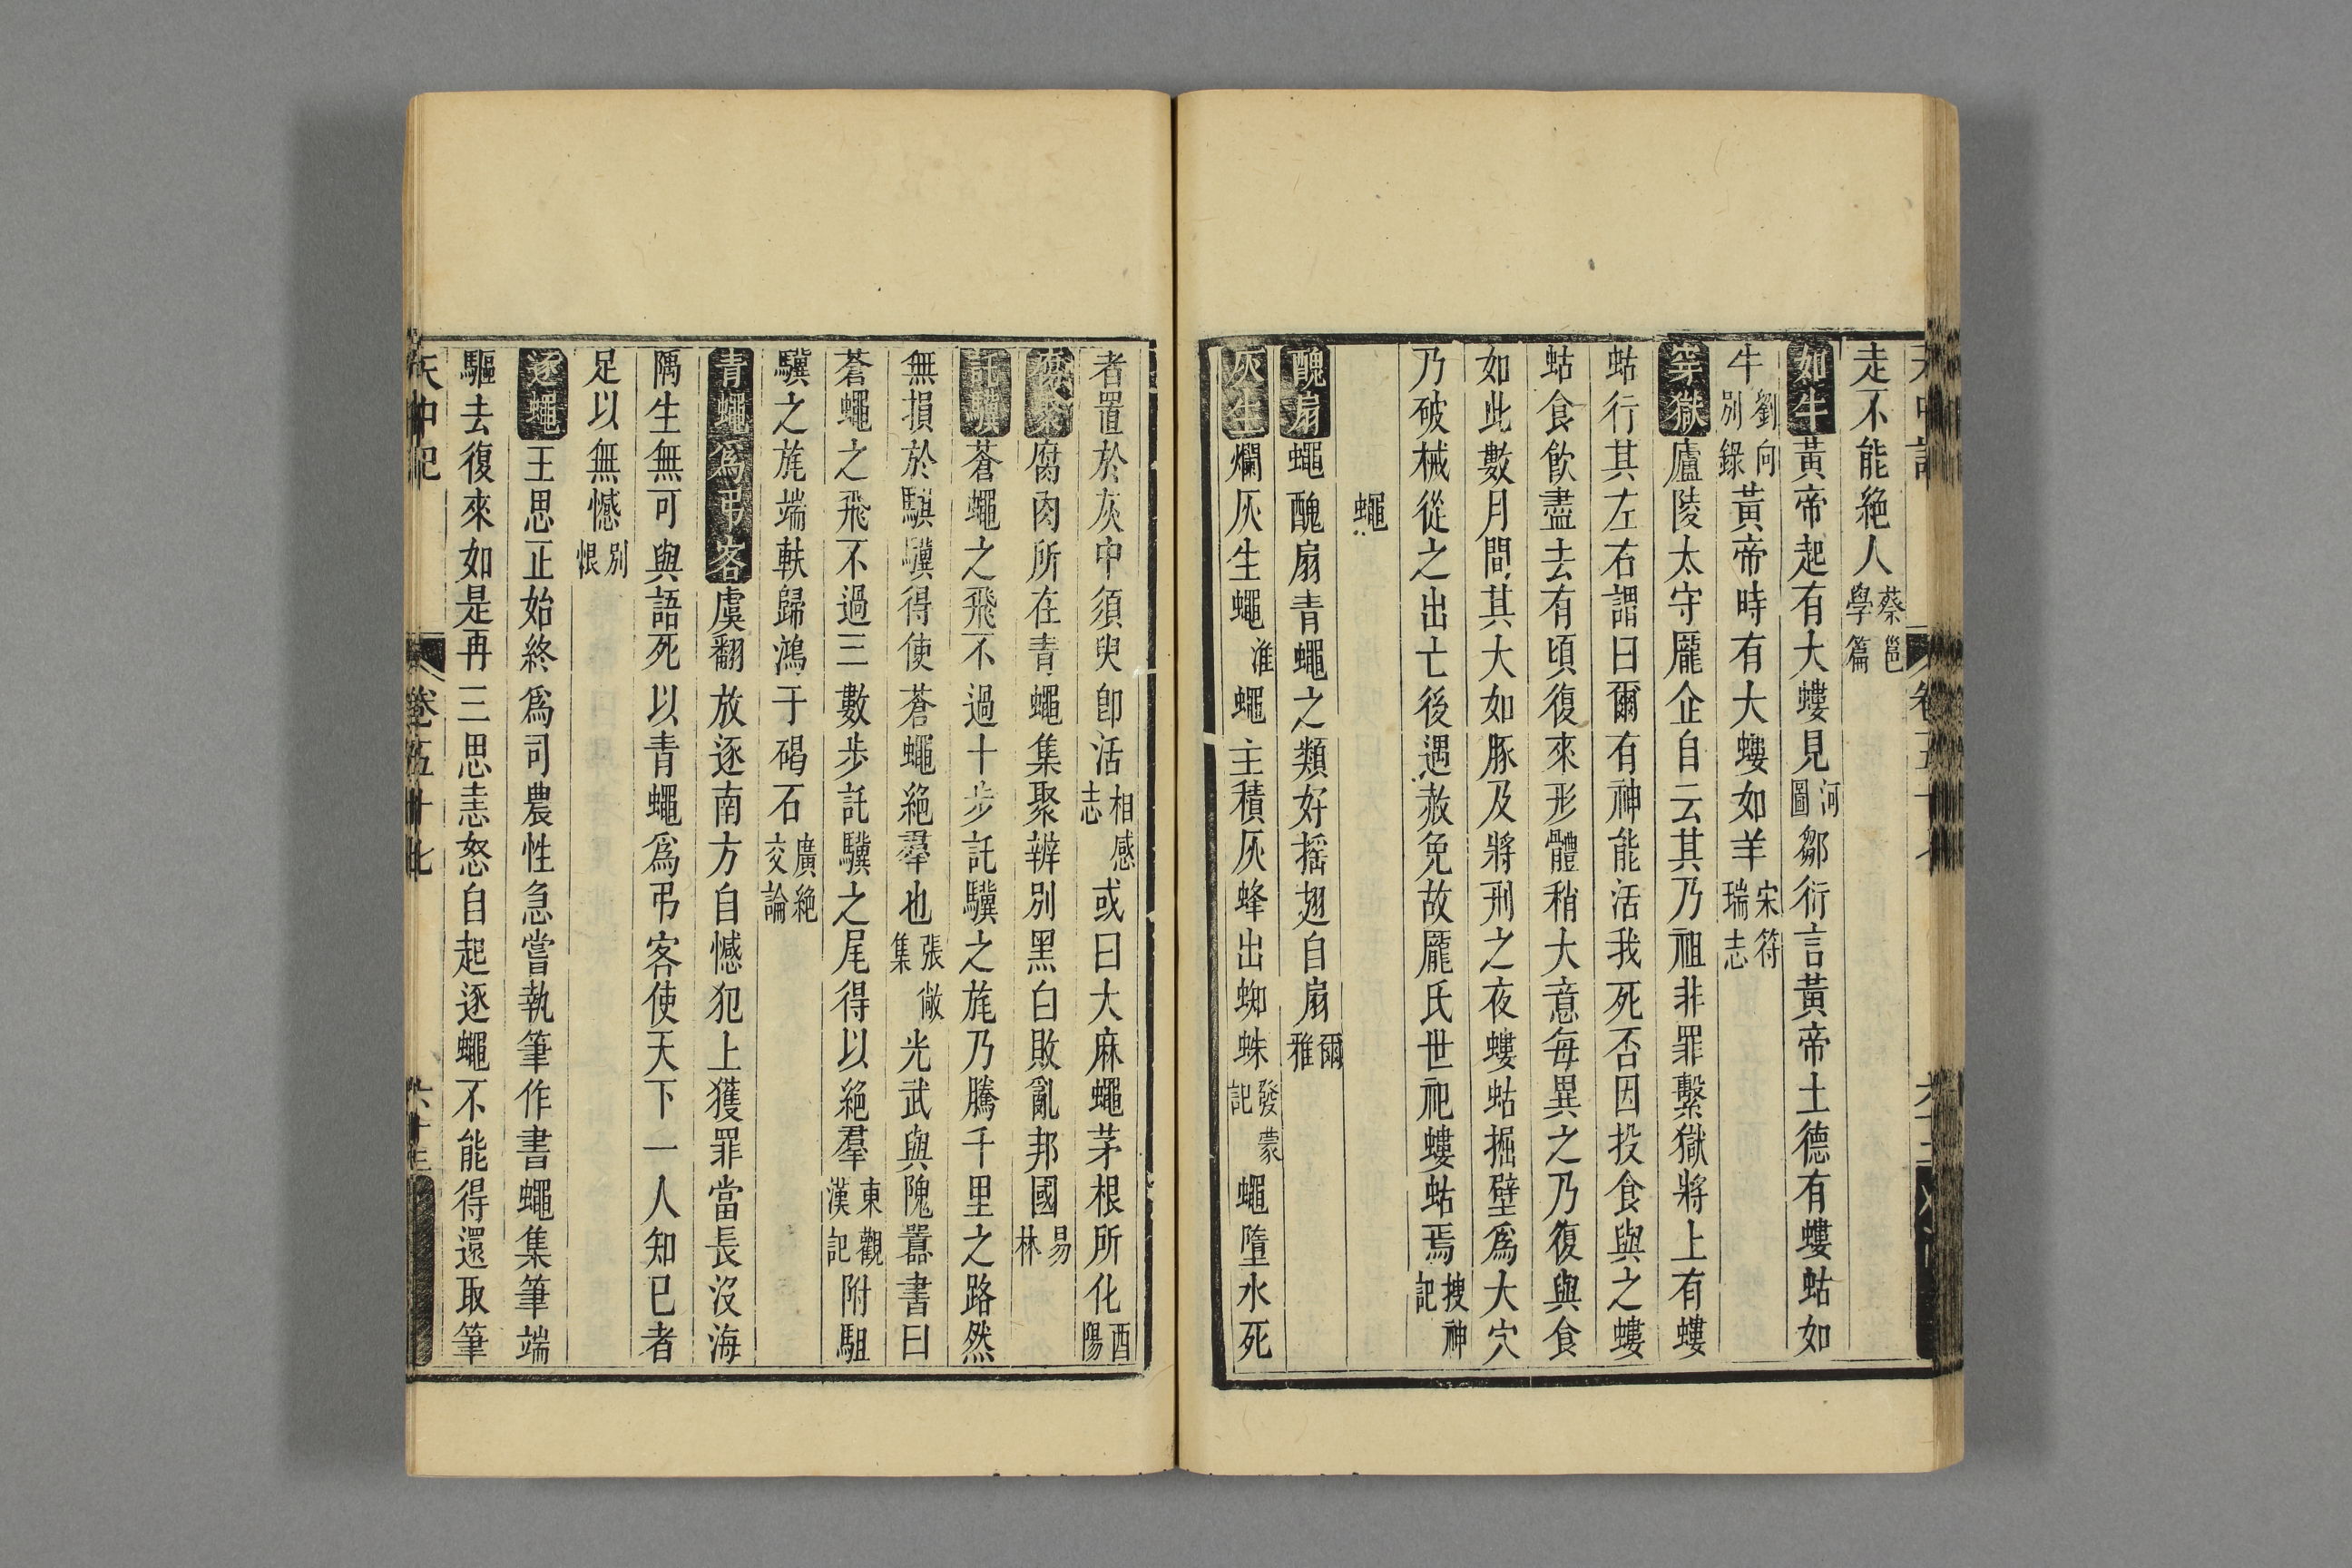 走不能絶人蔡邕學篇
如牛黃帝起有大螻見河圖鄒衍言黃帝土德有螻蛄如
牛劉向別錄黃帝時有大螻如羊宋符瑞志
穿獄廬陵太守龎企自云其乃祖非罪繫獄將上有螻
蛄行其左右謂曰爾有神能活我死否因投食與之螻
蛄食飲盡去有頃復來形體稍大意每異之乃復與食
如此數月間其大如豚及將刑之夜螻蛄掘壁爲大穴
乃破械從之出亡後遇赦免故龎氏世祀螻蛄焉搜神記
蠅
醜扇蠅醜扇青蠅之類好摇翅自扇爾雅
灰生爛灰生蠅淮蠅主積灰蜂出蜘蛛發蒙記蠅墮水死
者置於灰中須臾卽活相感志或曰大麻蠅茅根所化酉陽
腐聚腐肉所在青蠅集聚辨別黑白敗亂邦國易林
託驥蒼蠅之飛不過十步託驥之旄乃騰千里之路然
無損於騏驥得使蒼蠅絶羣也張敞集光武與隗囂書曰
蒼蠅之飛不過三數步託驥之尾得以絶羣東觀漢記附駔
驥之旄端軼歸鴻于碣石廣絶交論
青蠅爲弔客虞翻放逐南方自憾犯上獲罪當長沒海
隅生無可與語死以青蠅爲弔客使天下一人知已者
足以無憾別恨
逐蠅王思正始終爲司農性急嘗執筆作書蠅集筆端
驅去復來如是再三思恚怒自起逐蠅不能得還取筆
天中記 卷五十七 六十三